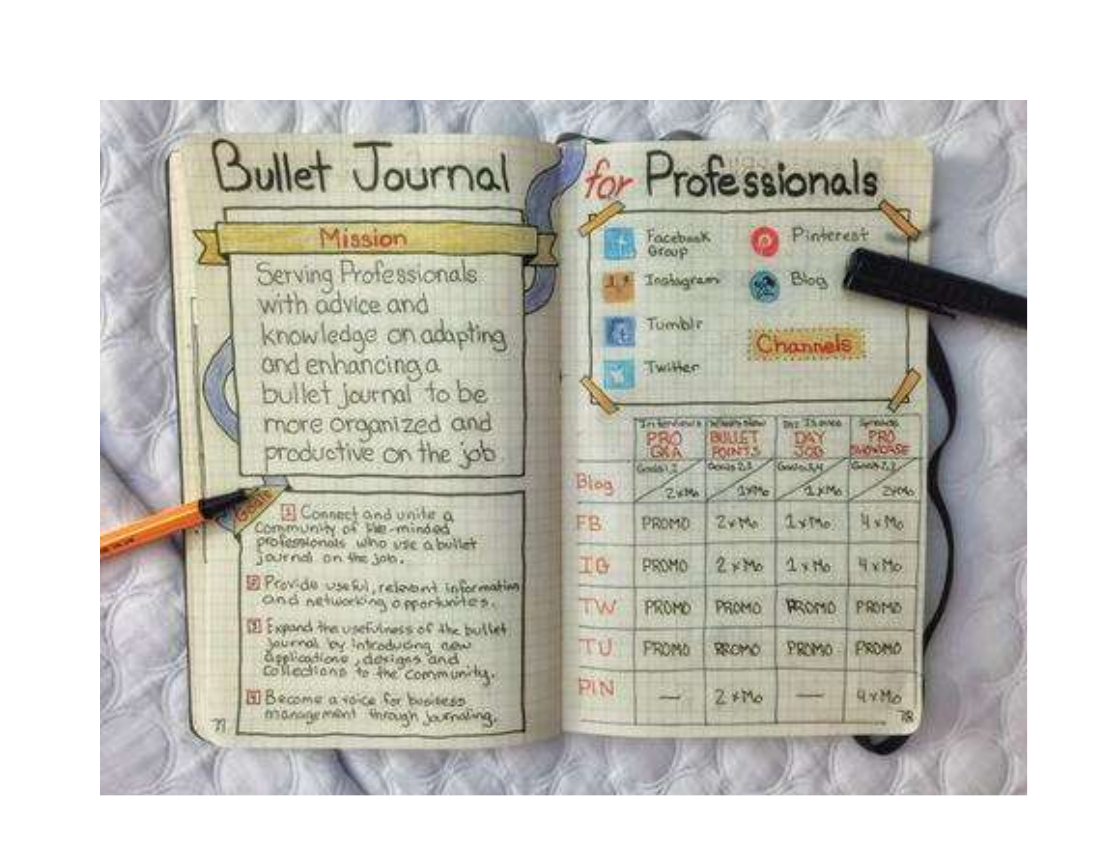 Bullet Journal
Mission
Serving Professionals
with advice and
knowledge on adapting
and enhancing a
bullet journal to be
more organized and
productive on the job
Goals
1 Connect and unite a
Community of like-minded
professionals who use a bullet
journal on the job.
2 Provide useful, relevant information
and networking opportunites.
3 Expand the usefulness of the bullet
journal by introducing new
applications, designs and
collections to the community.
4 Become a voice for business
management through journaling.
77
for Professionals
Facebook
Group
Pinterest
Instagram
Blog
Tumblr
Channels
Twitter
Interviews
PRO
Q&A
BULLET
POINTS
DAY
JOB
Spreads
PRO
SHOWCASE
Blog Goals 1,2 2xMo Goals 2,3 1xMo Goals 3,4 1xMo Goals 2,3 2xMo
FB PROMO 2xMo 1xMo 4xMo
IG PROMO 2xMo 1xMo 4xMo
TW PROMO PROMO PROMO PROMO
TU PROMO PROMO PROMO PROMO
PIN — 2xMo — 4xMo
78